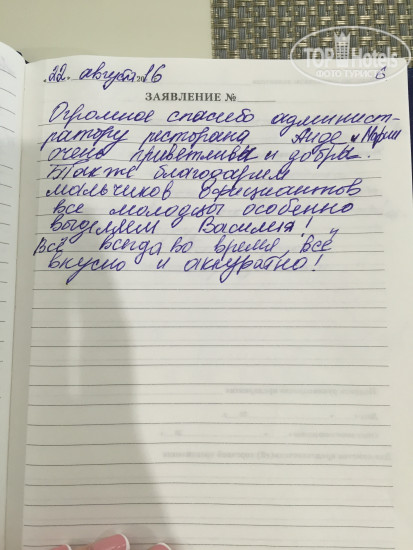 22. августа 2016
6
ЗАЯВЛЕНИЕ №
Огромное спасибо админист-
ратору ресторана Аиде и Марии
очень приветливы и добры.
Также благодарим
мальчиков официантов
все молодцы особенно
выделяем Василия!
Всё всегда во время, всё
вкусно и аккуратно!
TOP Hotels
ФОТО ТУРИСТОВ